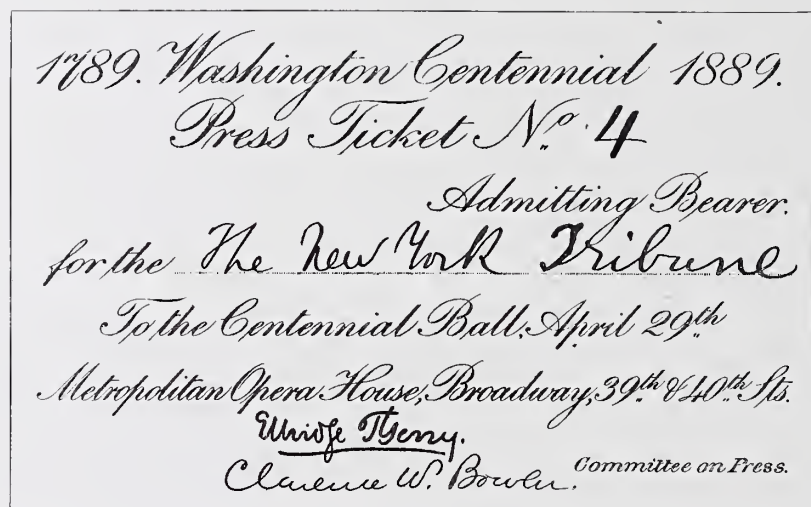 1789. Washington Centennial 1889.
Press Ticket No. 4
Admitting Bearer.
for the The New York Tribune
To the Centennial Ball, April 29th
Metropolitan Opera House, Broadway, 39th & 40th Sts.
Elbridge T. Gerry.
Clarence W. Bowen.
Committee on Press.